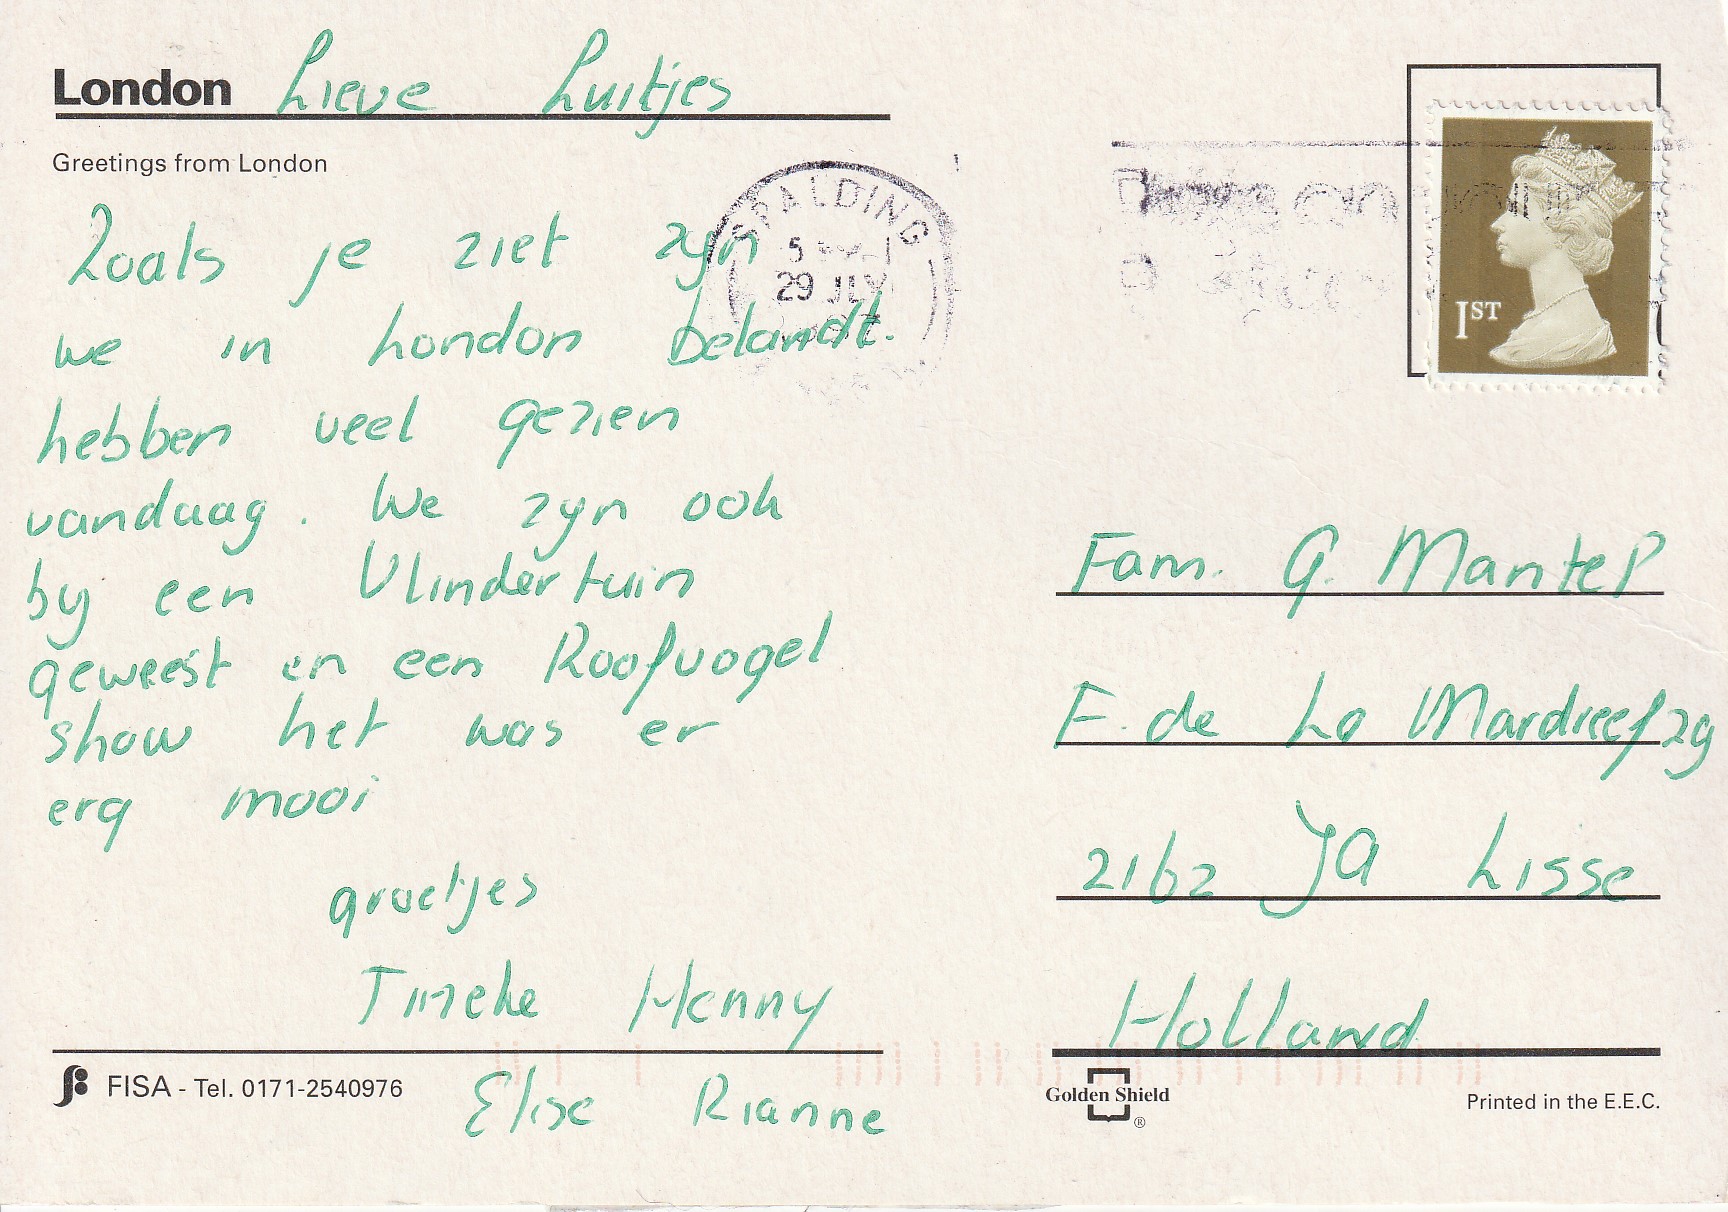 London Lieve Luitjes
Greetings from London
Zoals je ziet zyn
we in London belandt.
hebben veel gezien
vandaag. We zyn ook
by een Vlindertuin
geweest en een Roofvogel
show het was er
erg mooi
groetjes
Tineke Henny
Elise Rianne
FISA - Tel. 0171-2540976
SPALDING
29 JLY
1ST
Fam. G. Mantel
F. de La Mardreef 29
2162 JA Lisse
Holland
Golden Shield
®
Printed in the E.E.C.